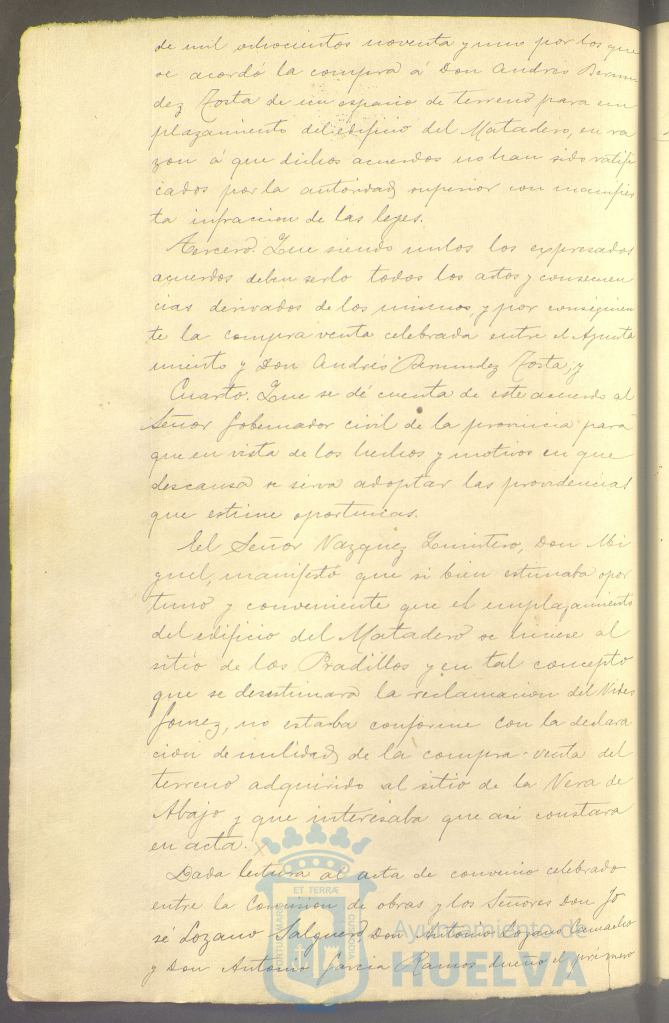 de mil ochocientos noventa y uno por los que
se acordó la compra á Don Andrés Bermu
dez Tosta de un espacio de terreno para em
plazamiento del edificio del Matadero, en ra
zon á que dichos acuerdos no han sido ratifi
cados por la autoridad superior con manifies
ta infraccion de las leyes.
Tercero. Que siendo nulos los expresados
acuerdos deben serlo todos los actos y consecuen
cias derivados de los mismos, y por consiguien
te la compra venta celebrada entre el Ayunta
miento y Don Andrés Bermudez Tosta; y
Cuarto. Que se dé cuenta de este acuerdo al
Señor Gobernador civil de la provincia para
que en vista de los hechos y motivos en que
descansa se sirva adoptar las providencias
que estime oportunas.
El Señor Vazquez Quintero, Don Mi
guel, manifestó que si bien estimaba opor
tuno y conveniente que el emplazamiento
del edificio del Matadero se hiciese al
sitio de los Pradillos y en tal concepto
que se desestimara la reclamacion del Vides
Gomez, no estaba conforme con la declara
cion de nulidad de la compra-venta del
terreno adquirido al sitio de la Vera de
Abajo y que interesaba que asi constara
en acta.
Dada lectura al acta de convenio celebrado
entre la Comision de obras y los Señores Don Jo
sé Lozano Salguero, Don Antonio Lozano Camacho
y Don Antonio Garcia Ramos dueño el primero
PORTUS MARIS
ET TERRÆ
CUSTODIA
Ayuntamiento de
HUELVA